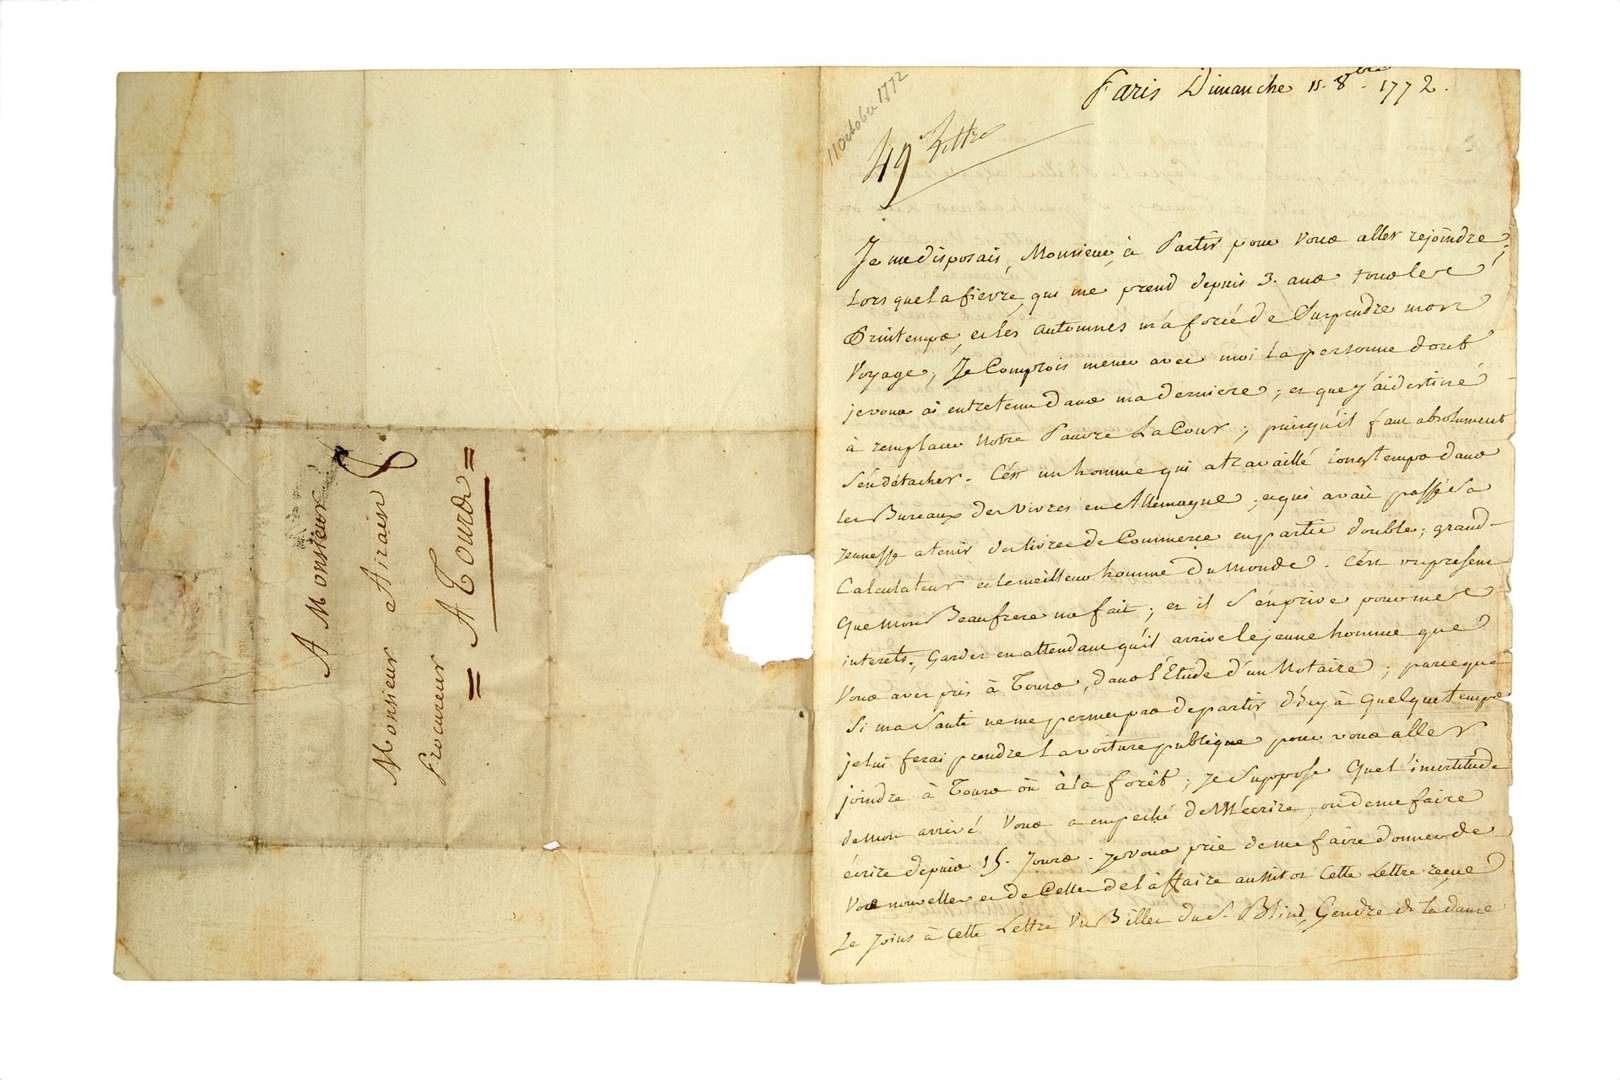 A Monsieur
Monsieur Airain
Procureur
= A Tours =
11 October 1772
Paris Dimanche 11. 8bre. 1772.
49 Lettre
Je me disposais, Monsieur, à Partir pour Vous aller rejoindre,
Lorsque La fievre, qui me prend depuis 3. ans tous les
Printemps, et les automnes m'a forcé de Suspendre mon
Voyage; Je Comptois mener avec moi La personne dont
je vous ai entretenu dans ma derniere; et que j'ai destiné
à remplacer Notre Pauvre LaCour; puisqu'il faut absolument
S'en détacher. C'est un homme qui a travaillé longtemps dans
les Bureaux des Vivres en Allemagne, et qui avait passé Sa
Jeunesse a tenir des livres de Commerce en partie double; grand
Calculateur et le meilleur homme Du Monde. C'est un present
Que Mon Beaufrere me fait; et il S'en prive pour mes
interets. Garder en attendant qu'il arrive le jeune homme que
Vous avez pris à Tours, dans l'Etude d'un Notaire; parceque
Si ma Santé ne me permet pas de partir d'icy à Quelque temps
je lui ferai prendre La voiture publique pour vous aller
joindre à Tours ou à la forêt; Je Suppose Que l'incertitude
de mon arrivé Vous a empeché de M'écrire, ou de me faire
écrire depuis 15. Jours. Je vous prie de me faire donner de
Vos nouvelles et de Celles de l'affaire aussitot Cette Lettre reçue
Je Joins à Cette Lettre Un Billet du S. Blind, Gendre de la dame